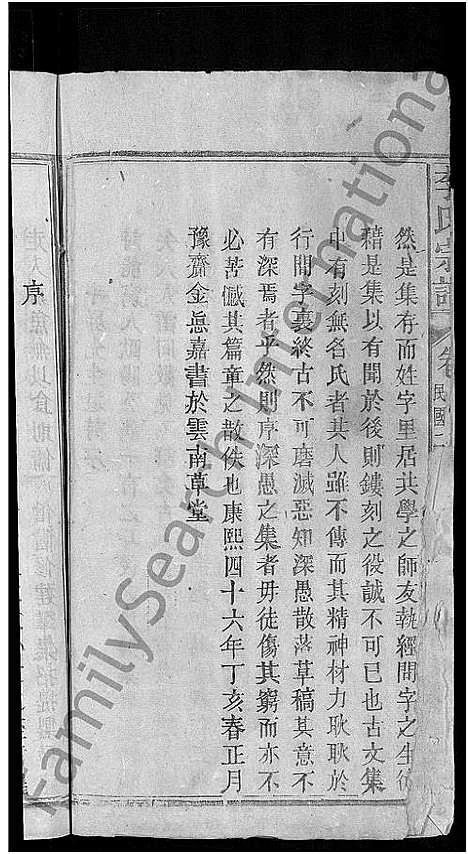 李氏宗譜
卷
民國二
然是集存而姓字里居共學之師友執經問字之生徒
藉是集以有聞於後則鏤刻之役誠不可已也古文集
中有刻無名氏者其人雖不傳而其精神材力耿耿於
行間字裏終古不可磨滅惡知深愚散落草稿其意不
有深焉者乎然則序深愚之集者毋徒傷其窮而亦不
必苦憾其篇章之散佚也康熙四十六年丁亥春正月
豫齋金惪嘉書於雲南草堂
序
FamilySearch International